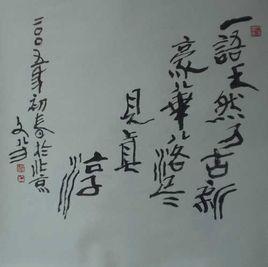 一語天然万古新
豪華落盡
見真
淳
二〇〇五年初春於北京